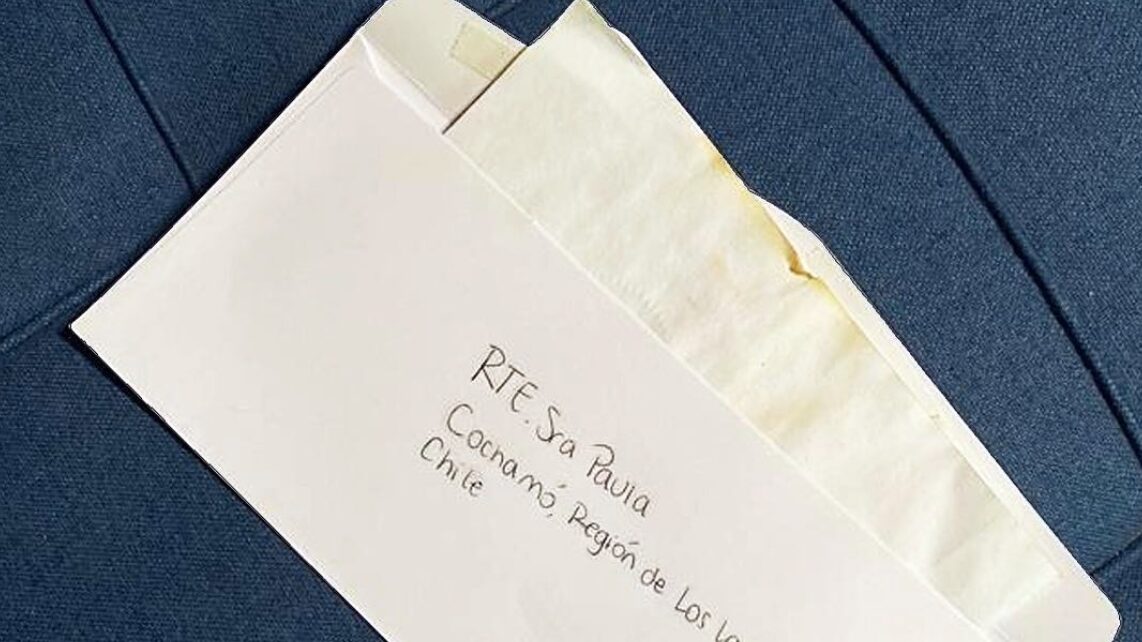 RTE. Sra Pavia
Cochamó, Región de Los
Chile